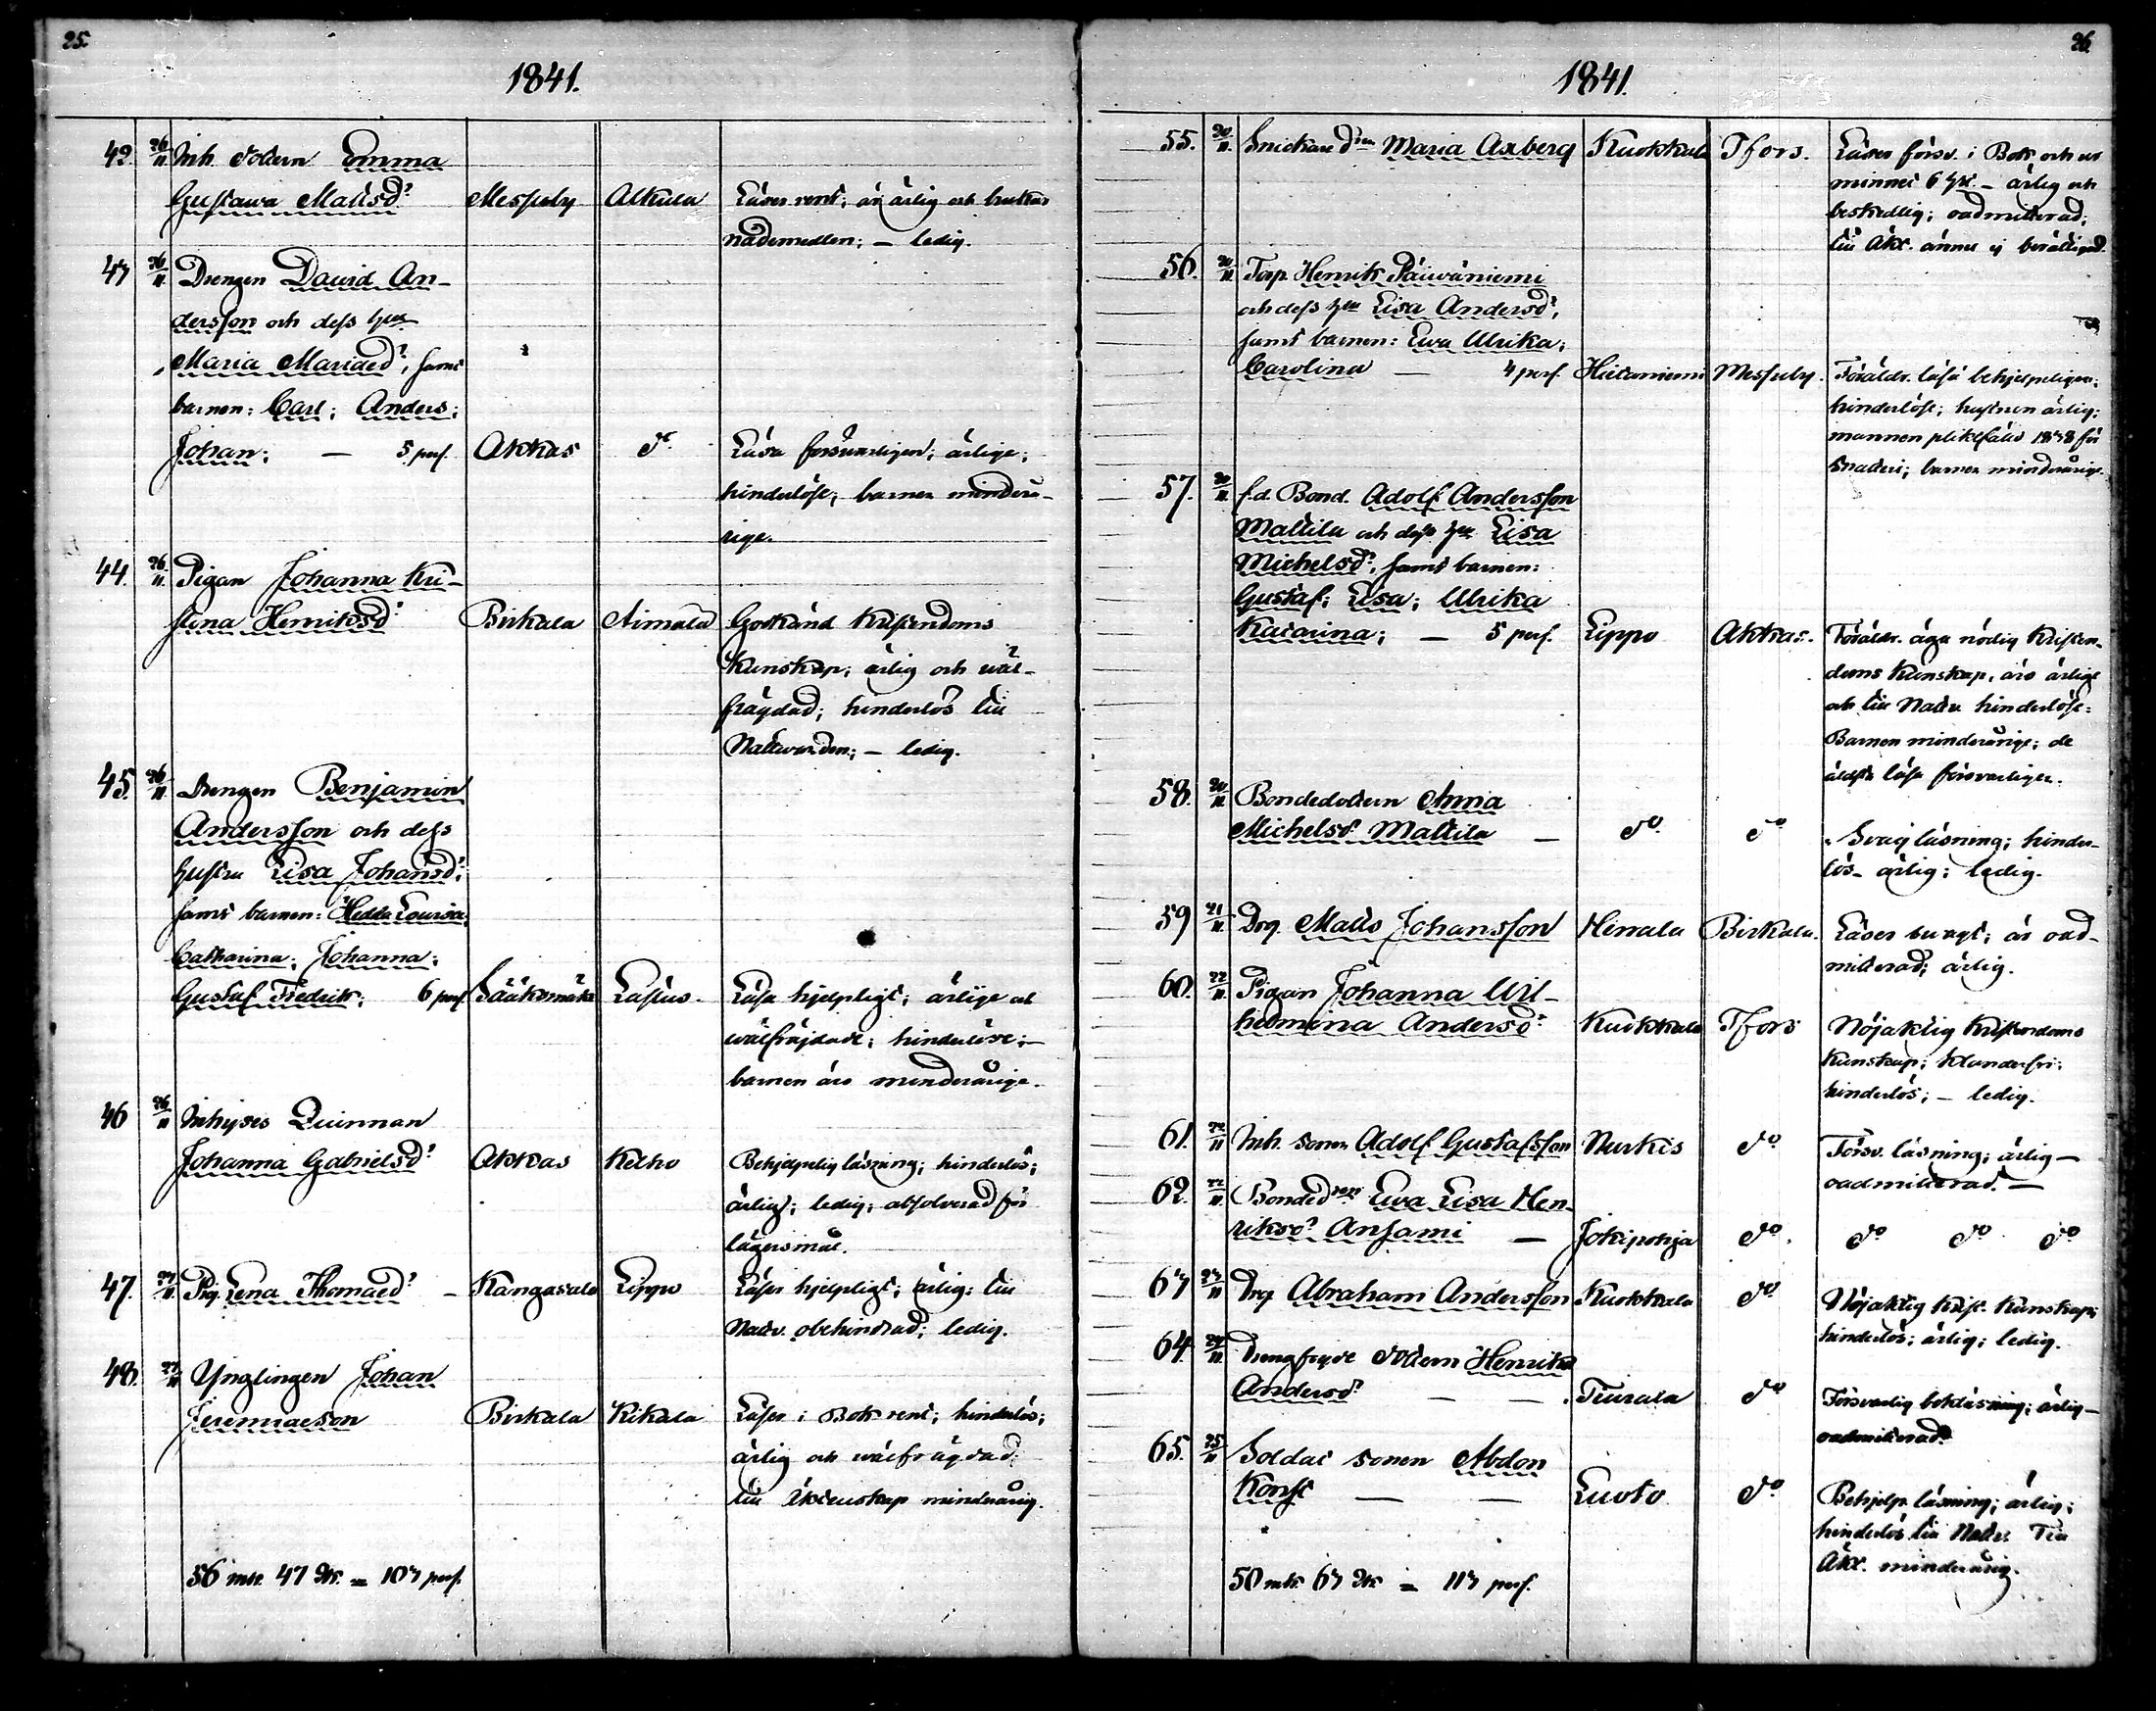 25.
1841.
42. 26/11 Inh. dottern Emma
Gustawa Matsd:r Messuby Alkula Läser rent; är ärlig och brukar
nådemedlen; — ledig.
43 26/11. Drengen David An-
dersson och dess h:u
Maria Mariaed:r, samt
barnen: Carl; Anders;
Johan; — 5 pers. Akkas d:o Läsa försvarligen; ärlige;
hinderlöse; barnen minderå-
rige.
44. 26/11. Pigan Johanna Kri-
stina Henriksd:r Birkala Aimala Godkänd Kristendoms
kunskap; ärlig och wäl-
frägdad; hinderlös till
Nattwarden; — ledig.
45. 26/11. Drengen Benjamin
Andersson och dess
hustru Lisa Johansd:r;
samt barnen: Hedda Lovisa;
Catharina; Johanna;
Gustaf Fredrik; 6 pers. Sääksmäki Lastus. Läsa hjelpligt; ärlige och
wälfräjdade; hinderlöse; —
barnen äro minderårige.
46 26/11 Inhyses Quinnan
Johanna Gabrielsd:r Akkas Ketho Behjelpelig läsning; hinderlös;
ärlig; ledig; absolverad för
lägersmål.
47. 27/11. Pig. Lena Thomaed:r – Kangasala Lippo Läser hjelpligt; ärlig; till
Nattv. obehindrad; ledig.
48. 27/11 Ynglingen Johan
Jeremiaeson Birkala Kikala Läser i Bok rent; hinderlös;
ärlig och wälfrägdad;
till Äktenskap minderårig.
56 mk. 47 Qk. = 103 pers.
26.
1841.
55. 20/11. Snickare d:ren Maria Axberg Kuokkala Tfors. Läser försv. i Bok och ur
minnet 6 h.st. – ärlig och
beskedlig; oadmitterad;
till Äkt. ännu ej berättigad.
56. 20/11. Torp. Henrik Päiwäniemi
och dess h:u Lisa Andersd:r,
samt barnen: Ewa Ulrika;
Carolina — 4 pers. Hietaniemi Messuby. Föräldr. läsa behjelpeligen;
hinderlöse; hustrun ärlig;
mannen pliktfälld 1838 för
snatteri; barnen minderårige.
57. 20/11. f.d. Bond. Adolf Andersson
Mattila och dess h:u Lisa
Michelsd:r, samt barnen:
Gustaf; Lisa; Ulrika
Katarina; — 5 pers. Lippo Akkas. Föräldr. äga nödig Kristen-
doms Kunskap, äro ärlige
och till Nattv. hinderlöse:
Barnen minderårige; de
äldsta läsa försvarligen.
58. 20/11. Bondedottern Anna
Michelsd:r Mattila — d:o d:o Svag läsning; hinder-
lös – ärlig; ledig.
59 21/11. Drg. Matts Johansson Herrala Birkala. Läser svagt; är oad-
mitterad; ärlig.
60. 22/11. Pigan Johanna Wil-
helmina Andersd:r Kuokkala Tfors Nöjaktig Kristendoms
Kunskap; klanderfri;
hinderlös; – ledig.
61. 22/11 Inh. sonen Adolf Gustafsson Nurkis d:o Försv. läsning; ärlig –
oadmitterad. —
62. 22/11 Bonded:ren Ewa Lisa Hen-
riksd:r Ansami — Jokipohja d:o d:o d:o d:o
63 23/11 Drg. Abraham Andersson Kuokkala d:o Nöjaktig Krist. Kunskap;
hinderlös; ärlig; ledig.
64. 24/11. Drengfryde dottern Henrika
Andersd:r — — Tiurala d:o Försvarlig bokläsning; ärlig –
oadmitterad
65. 25/11 Soldat sonen Abdon
Konst — — Luoto d:o Behjelp. läsning; ärlig;
hinderlös till Nattv. Till
Äkt. minderårig.
50 mk. 63 Qk = 113 pers.